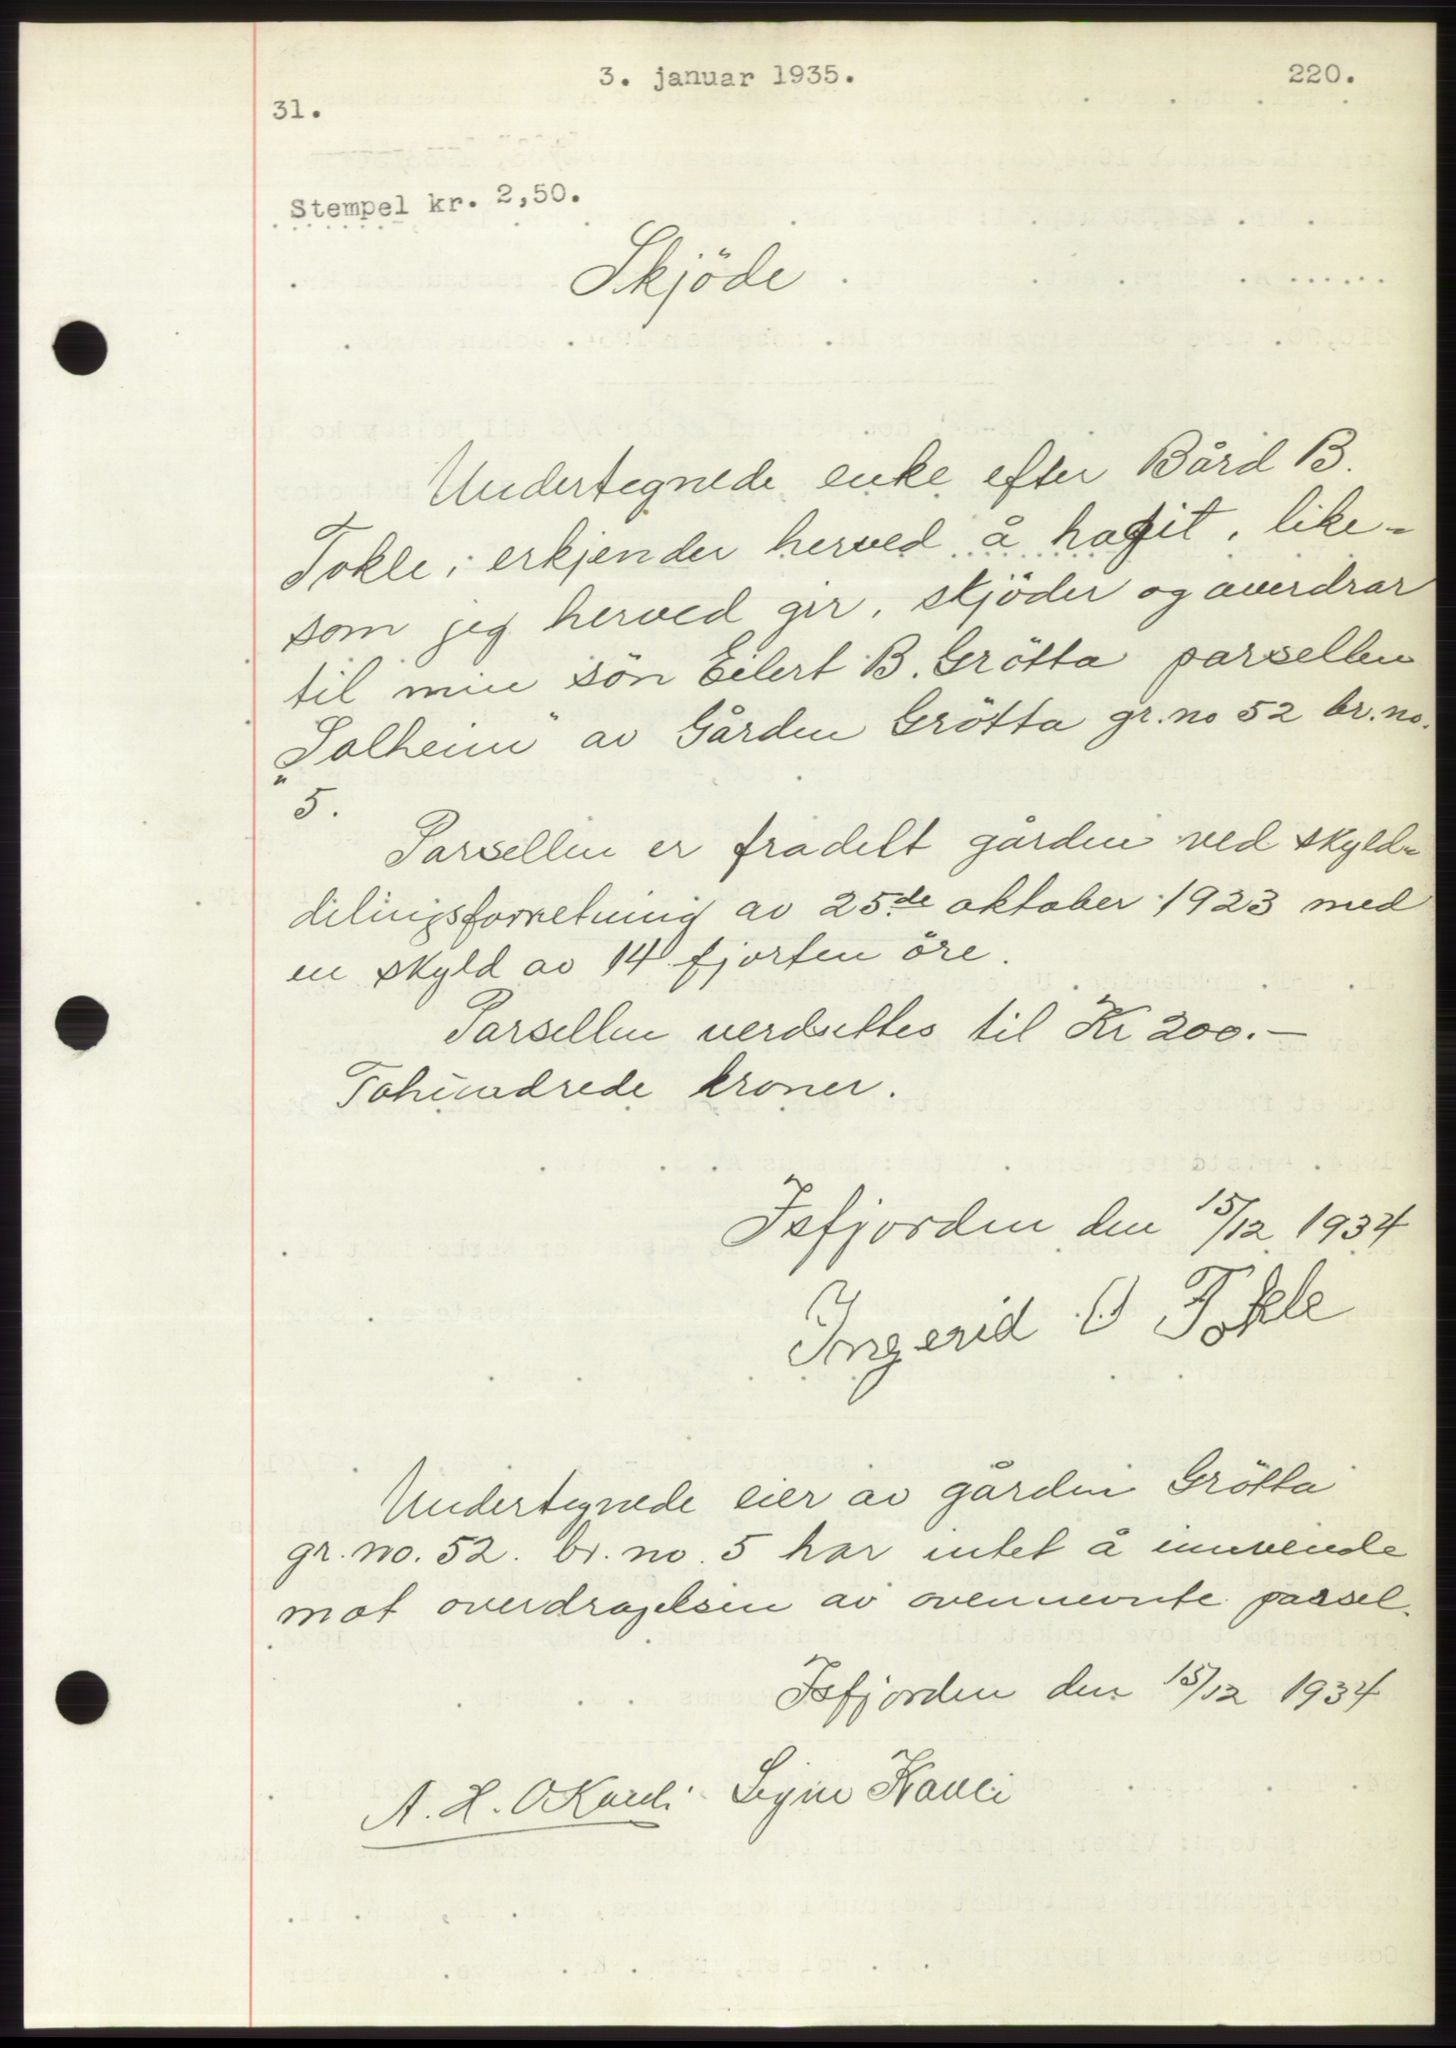 3. januar 1935.
220.
31.
Stempel kr. 2,50.
Skjöde
Undertegnede enke efter Bård B.
Tokle, erkjender herved å hagit, like-
som jeg herved gir, skjöder og averdrar
til min sön Eilert B. Grötta parsellen
„Solheim" av Gården Grötta gr. no 52 br. no.
5.
Parsellen er fradelt gården ved skyld-
delingsforretning av 25de oktober 1923 med
en skyld av 14 fjorten öre.
Parsellen verdsettes til Kr 200.—
Tohundrede kroner.
Isfjorden den 15/12 1934
Ingerid O Tokle
Undertegnede eier av gården Grötta
gr. no. 52. br. no. 5 har intet å innvende
mot overdragelsen av ovennevnte parsel.
Isfjorden den 15/12 1934
A. L. O Kavli Signe Kavli